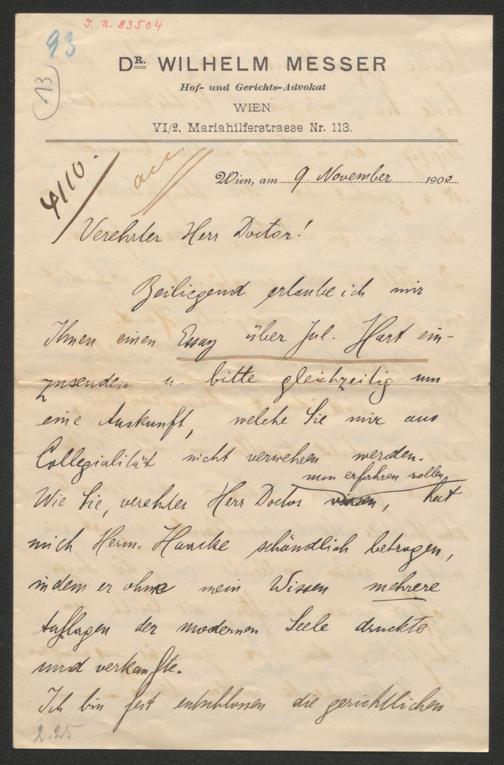 I. N. 83504
93
13
DR. WILHELM MESSER
Hof- und Gerichts-Advokat
WIEN
VI/2, Mariahilferstrasse Nr. 113.
4110.
acc
Wien, am 9. November 1902
Verehrter Herr Doctor!
Beiliegend erlaube ich mir
Ihnen einen Essay über Jul. Hart ein-
zusenden u bitte gleichzeitig um
eine Auskunft, welche Sie mir aus
Collegialität nicht verwehren werden.
nun erfahren sollen
Wie Sie, verehrter Herr Doctor wissen, hat
mich Herm. Haacke schändlich betrogen,
indem er ohne mein Wissen mehrere
Auflagen der modernen Seele druckte
und verkaufte.
Ich bin fest entschlossen die gerichtlichen
2.25